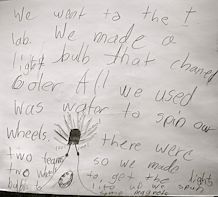 We went to the T
lab. We made a
light bulb that chanel
coler All we used
was water to spin our
wheels. there were
two teams so we made
two wheels to get the light
bulb to lite up we spun
some magnets